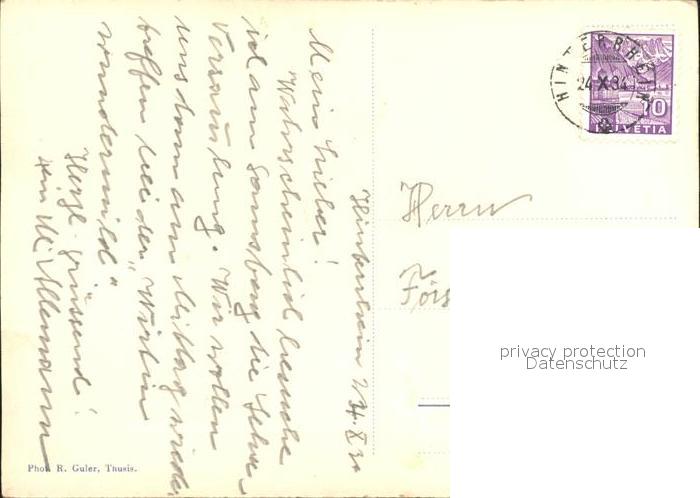 Hinterrhein 24.X.34
Mein Lieber!
Wahrscheinlich besuche
ich am Samstag die Lehrer
Versammlung. Wir wollen
uns dann am Mittag wieder
treffen bei der "Wirtin
wundermild"
Herzl. grüssend!
Allemann
Herrn
Förs
HINTERRHEIN
24.X.34
10
HELVETIA
Phot. R. Guler, Thusis.
privacy protection
Datenschutz